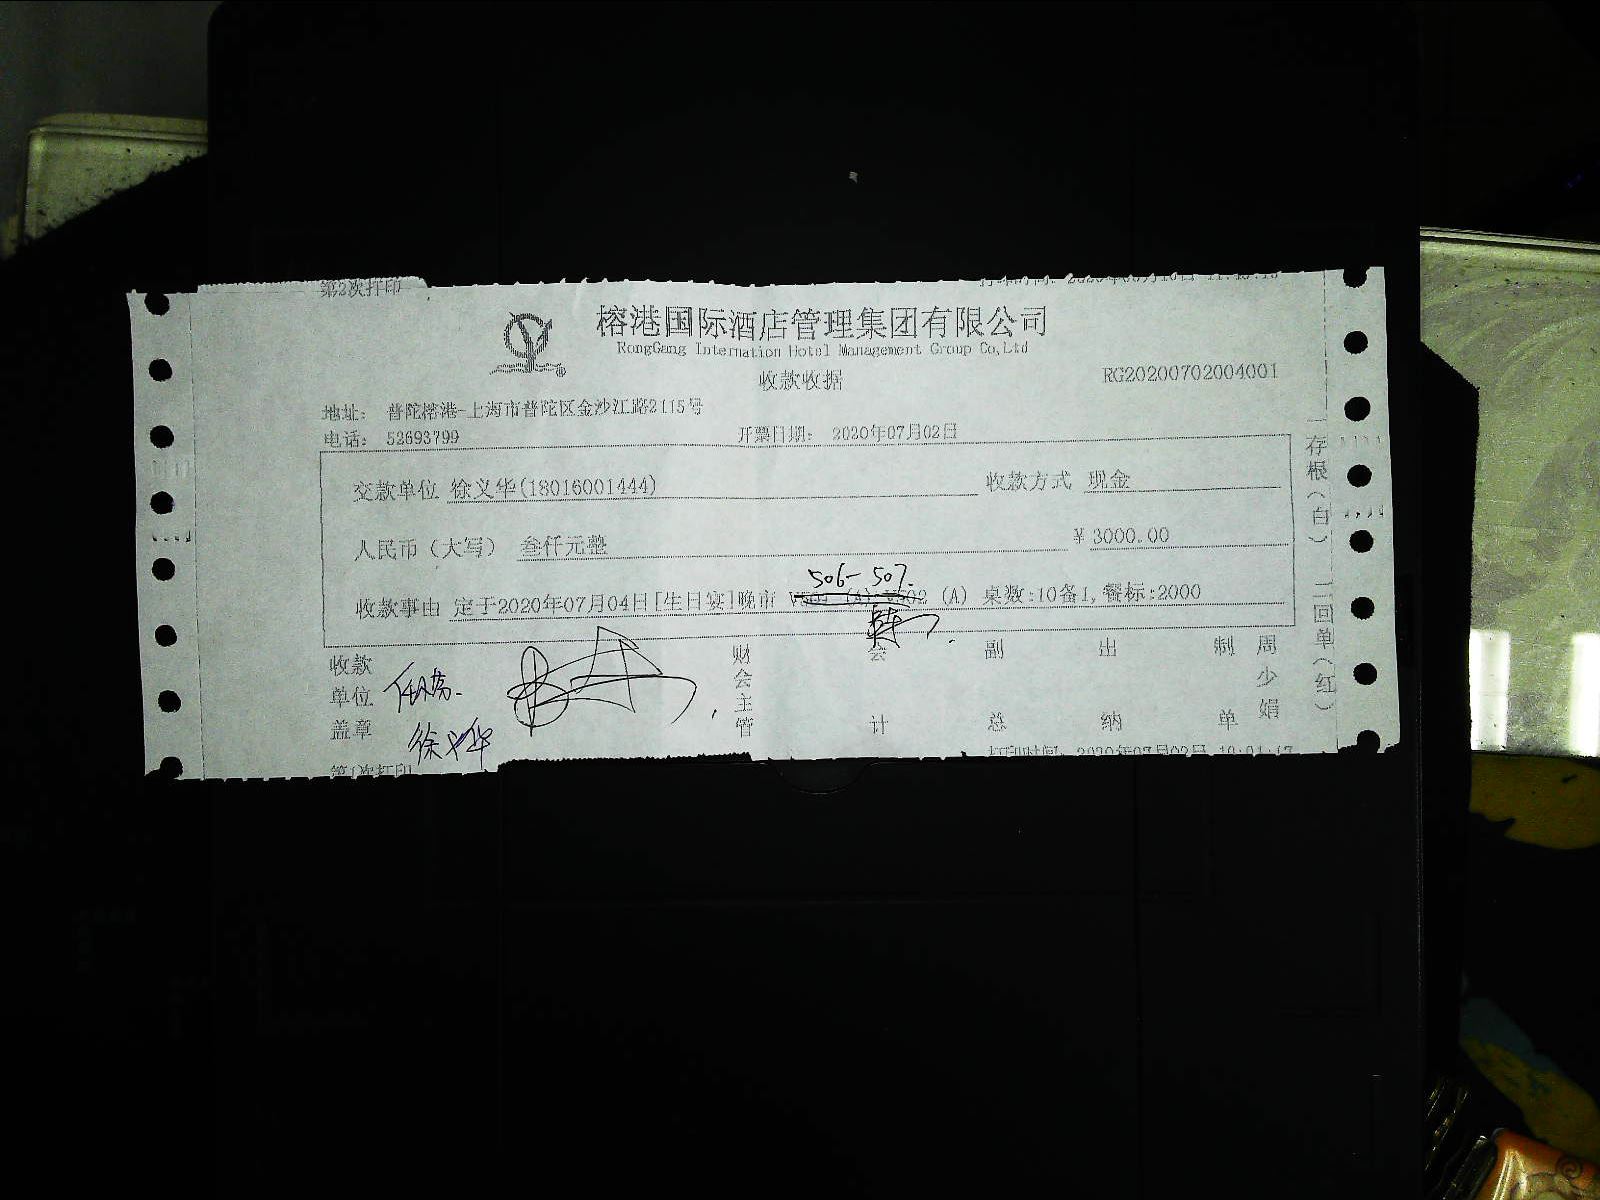 第2次打印
榕港国际酒店管理集团有限公司
RongGang Internation Hotel Management Group Co,Ltd
收款收据
RG20200702004001
地址: 普陀榕港-上海市普陀区金沙江路2115号
电话: 52693799 开票日期: 2020年07月02日
交款单位 徐义华(18016001444) 收款方式 现金
人民币（大写） 叁仟元整 ￥3000.00
506-507.
收款事由 定于2020年07月04日[生日宴]晚市 (A) 桌数:10备1,餐标:2000
收款单位盖章 徐义华 财会主管 会计 副总 出纳 制单 周少娟
第1次打印 打印时间: 2020年07月02日
一存根(白) 二回单(红)